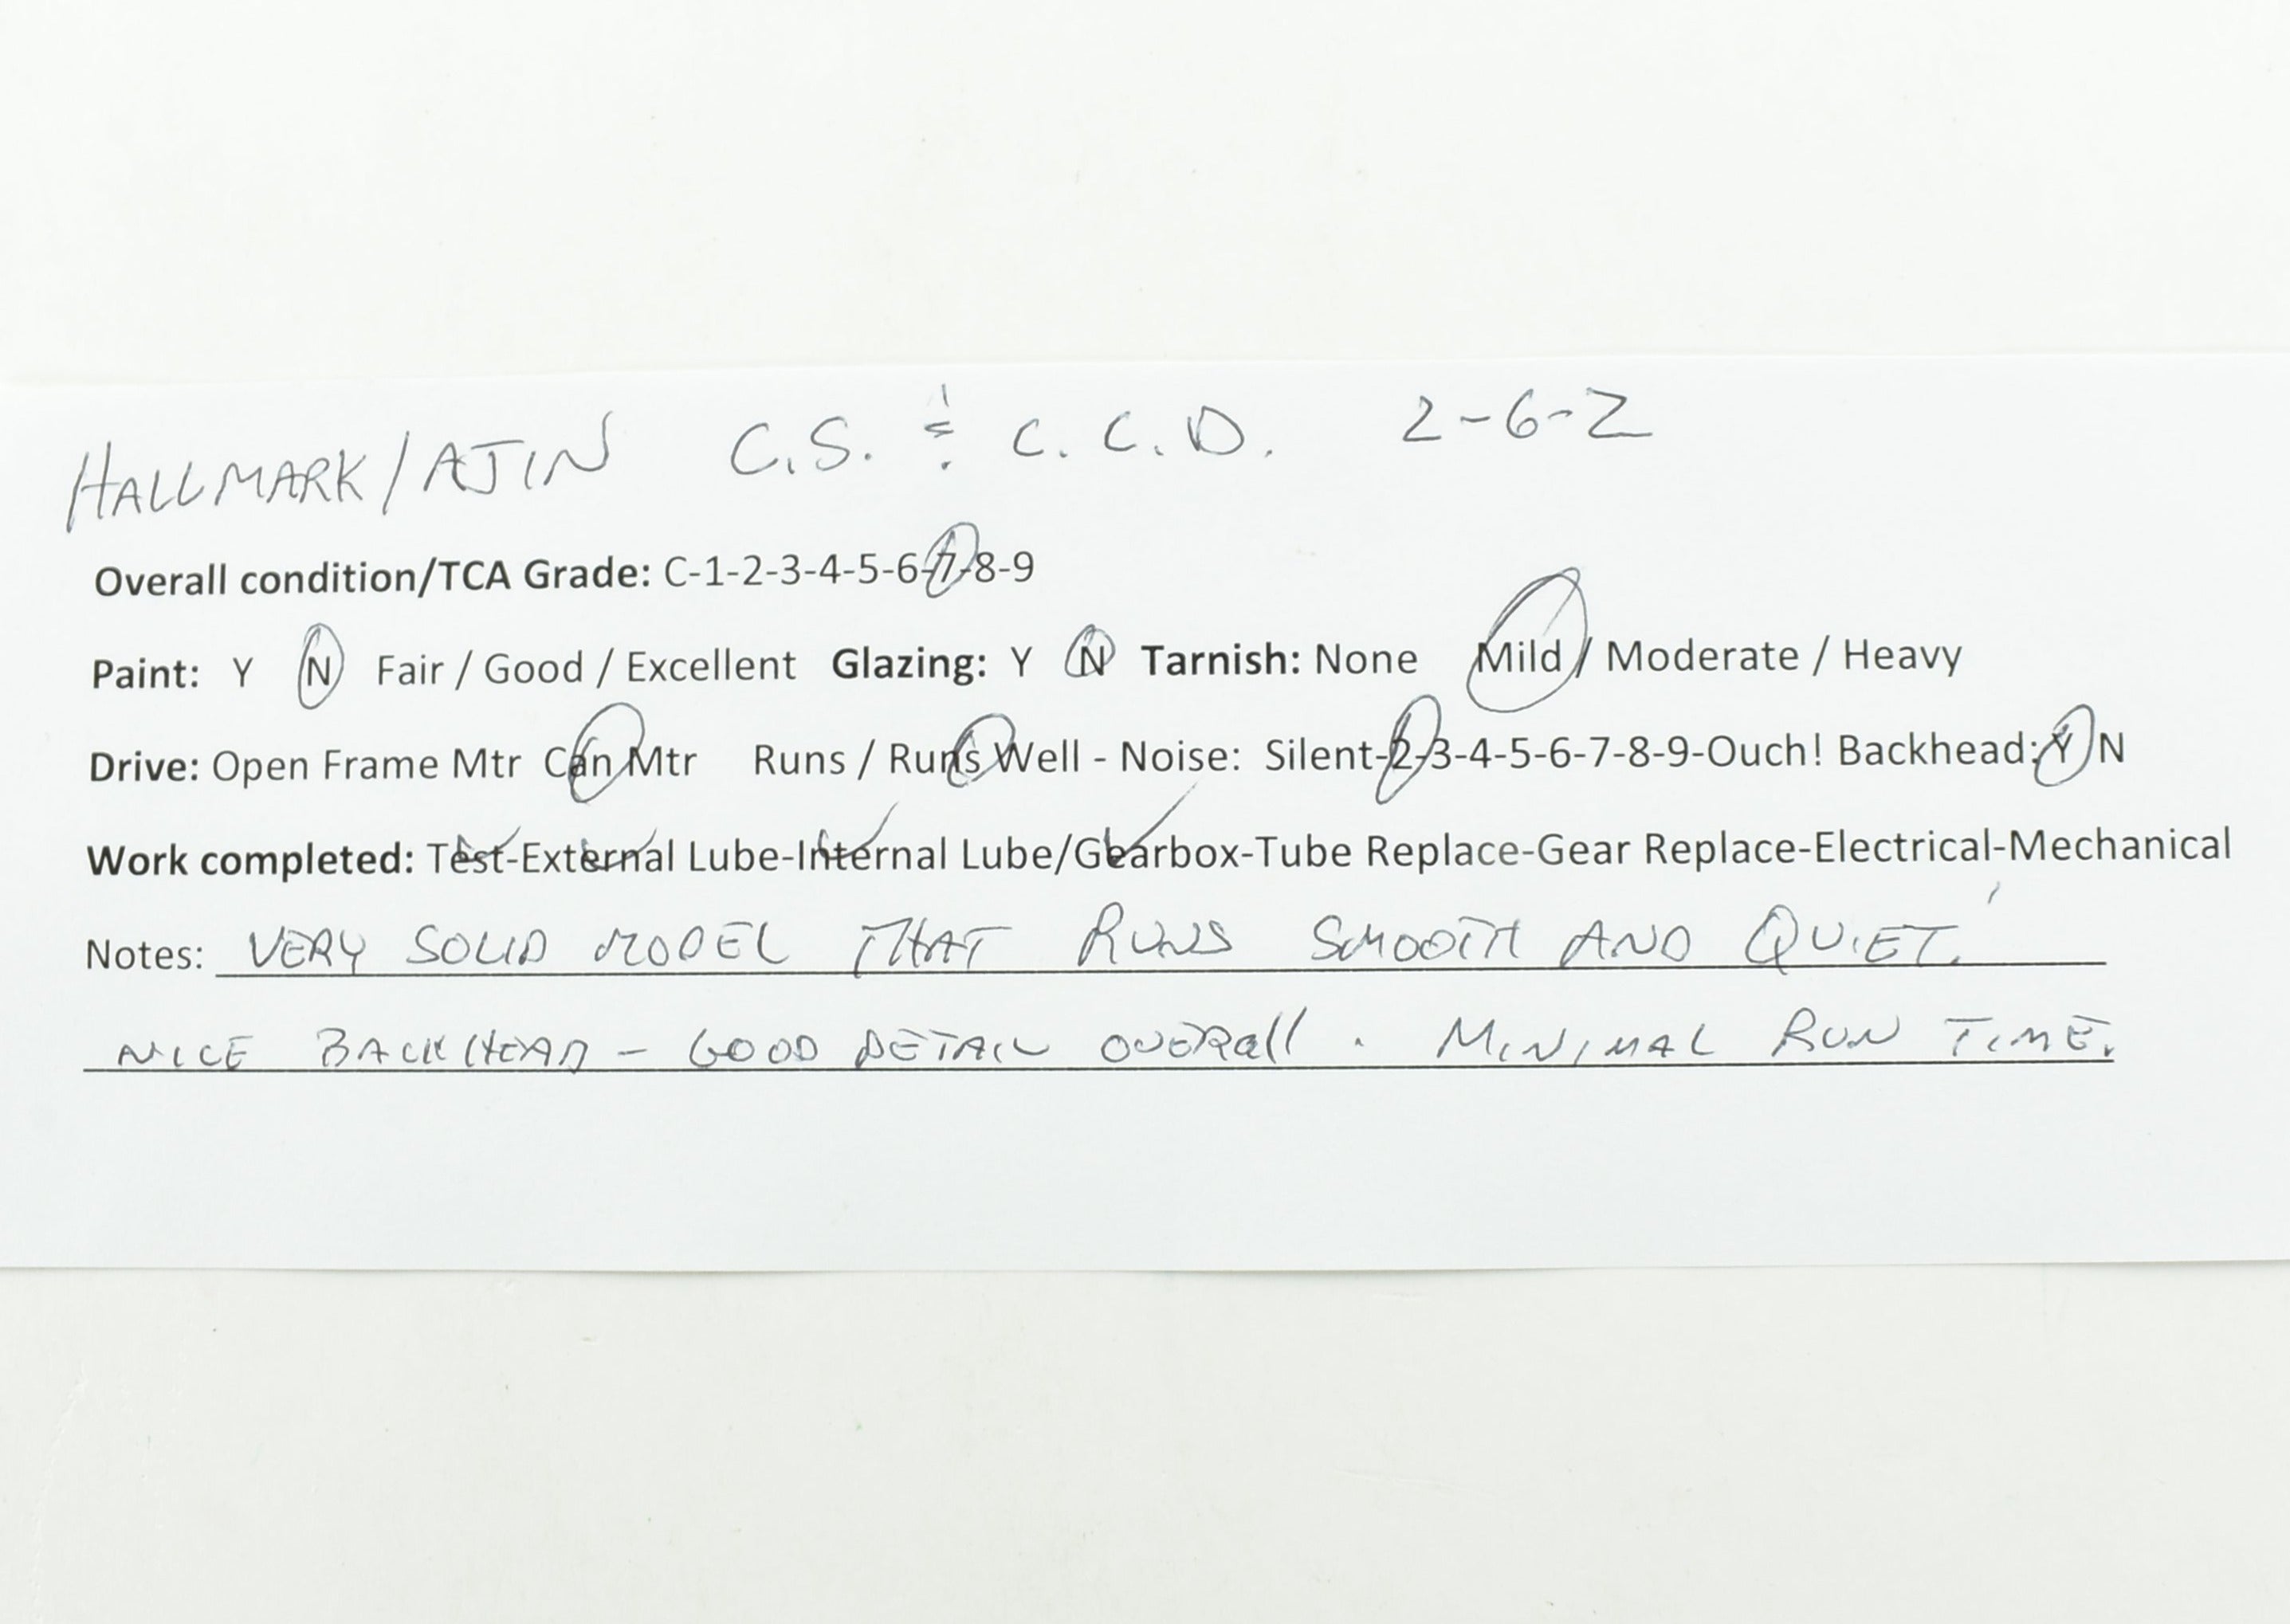 HALLMARK/AJIN C.S. & C.C.D. 2-6-2
Overall condition/TCA Grade: C-1-2-3-4-5-6-7-8-9
Paint: Y N Fair / Good / Excellent Glazing: Y N Tarnish: None Mild / Moderate / Heavy
Drive: Open Frame Mtr Can Mtr Runs / Runs Well - Noise: Silent-2-3-4-5-6-7-8-9-Ouch! Backhead: Y N
Work completed: Test-External Lube-Internal Lube/Gearbox-Tube Replace-Gear Replace-Electrical-Mechanical
Notes: VERY SOLID MODEL THAT RUNS SMOOTH AND QUIET.
NICE BACKHEAD - GOOD DETAIL OVERall. MINIMAL RUN TIME.